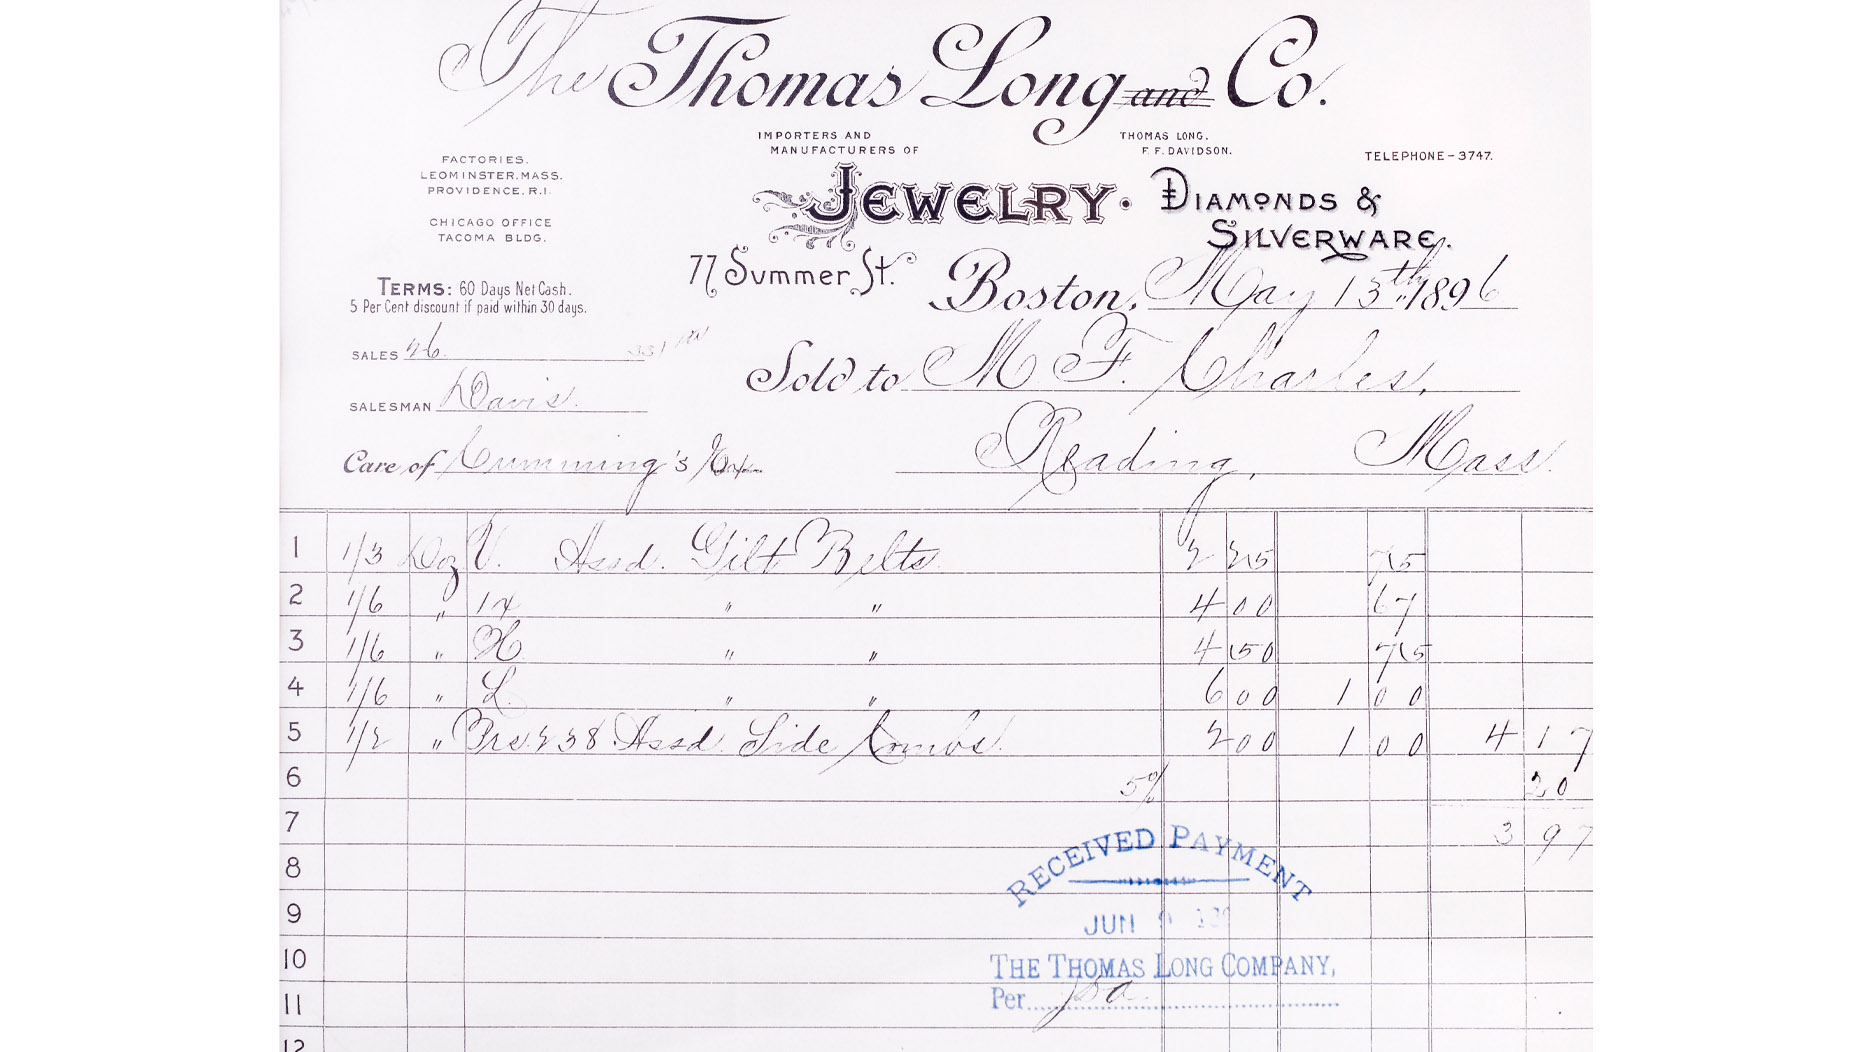 The Thomas Long and Co.
IMPORTERS AND
MANUFACTURERS OF
THOMAS LONG.
F. F. DAVIDSON.
TELEPHONE-3747.
FACTORIES.
LEOMINSTER, MASS.
PROVIDENCE, R.I.
CHICAGO OFFICE
TACOMA BLDG.
JEWELRY · DIAMONDS &
SILVERWARE.
77 Summer St. Boston, May 13th 1896
TERMS: 60 Days Net Cash.
5 Per Cent discount if paid within 30 days.
SALES 46
Sold to M F. Charles,
SALESMAN Davis.
Care of Cumming's Ex. Reading, Mass.
1 1/3 Doz V. Assd. Gilt Belts 2 25 75
2 1/6 " 14 " " 4 00 67
3 1/6 " H " " 4 50 75
4 1/6 " L " " 6 00 1 00
5 1/2 " Prs 238 Assd. Side Combs. 2 00 1 00 4 17
6 5% 20
7 3 97
8
9
10
11
12
RECEIVED PAYMENT
JUN 9
THE THOMAS LONG COMPANY,
Per